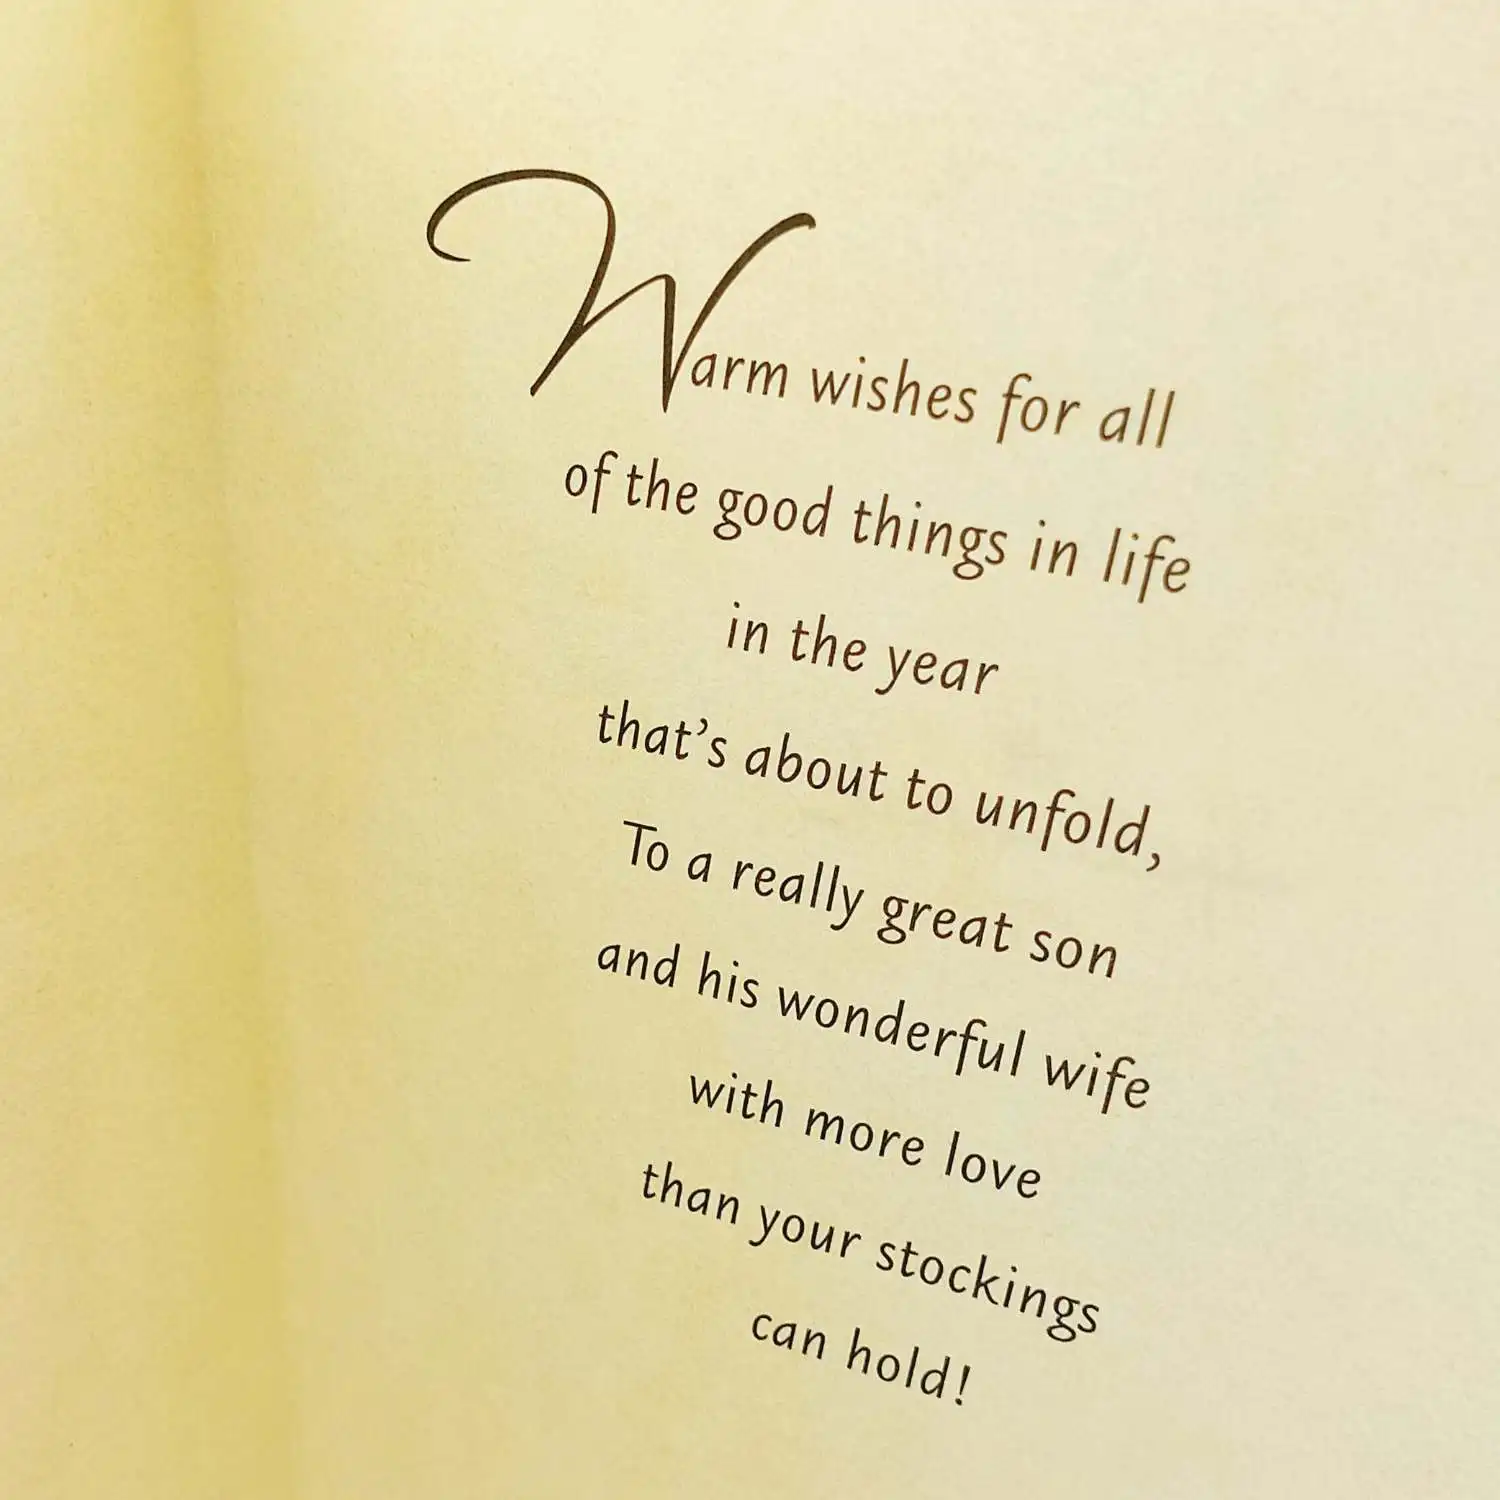 Warm wishes for all
of the good things in life
in the year
that’s about to unfold,
To a really great son
and his wonderful wife
with more love
than your stockings
can hold!